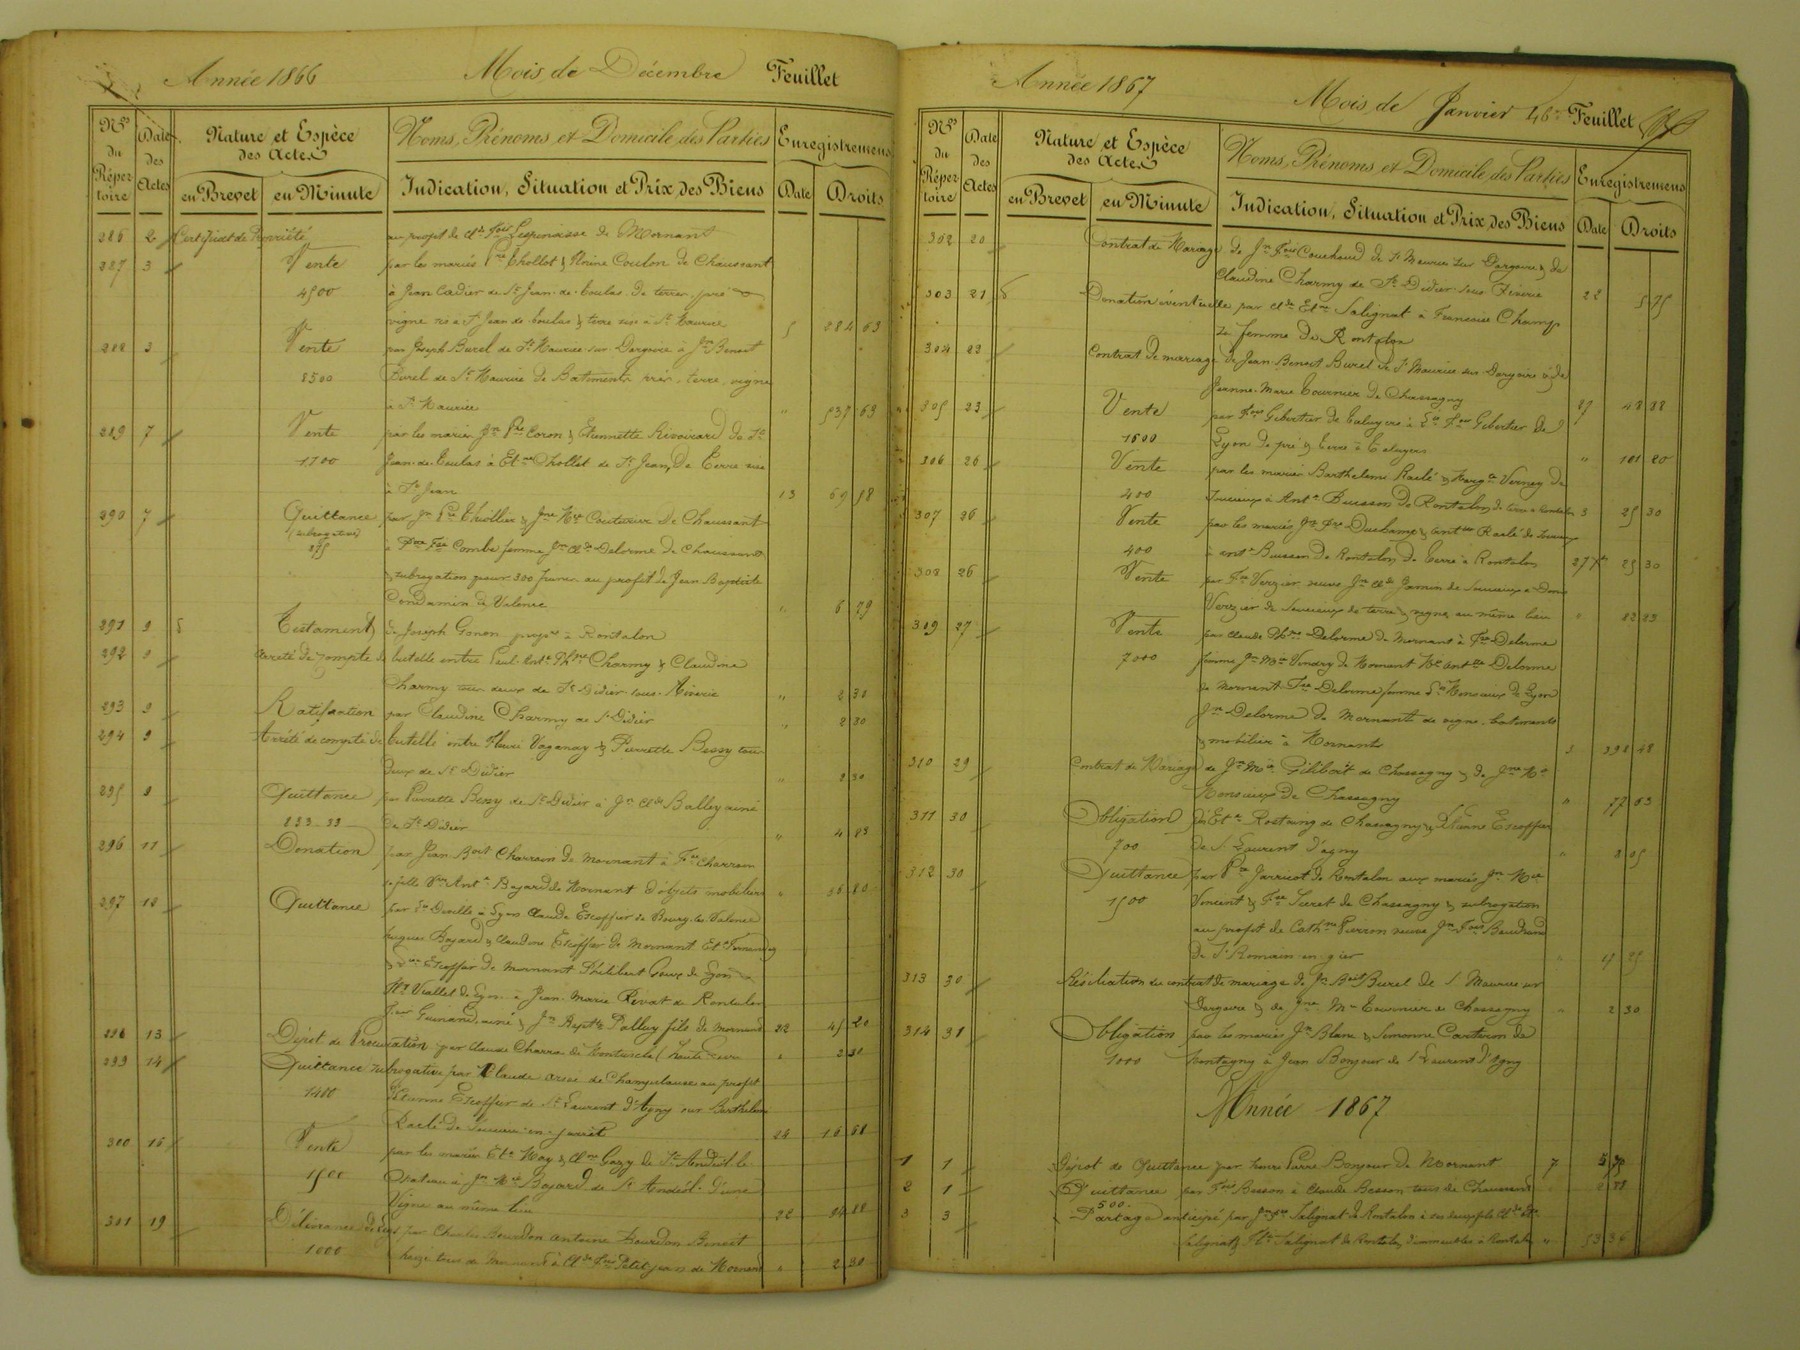 Année 1866 Mois de Décembre Feuillet
Nos du Répertoire Date des Actes Nature et Espèce des Actes en Brevet en Minute Noms, Prénoms et Domicile des Parties Indication, Situation et Prix des Biens Enregistremens Date Droits
286 2 Certificat de Propriété au profit de Cl de Fois Lespinasse de Mornant
287 3 Vente par les mariés Chollot & Coulon de Chaussant
4500 à Jean Cadier de St Jean de Toulas de terres, pré
vigne sis à St Jean de Toulas & terre sise à St Maurice 5 284 63
288 3 Vente par Joseph Burel de St Maurice sur Dargoire à Jn Benoit
8500 Burel de St Maurice de Batiments prés, terre, vigne
à St Maurice " 537 63
289 7 Vente par les mariés Jn Coron & Etiennette Rivoirard de St
1100 Jean de Toulas à Etne Chollet de St Jean, De Terre sise
à St Jean 13 69 18
290 7 Quittance par Jn Thiollier & Jne Mie Couturier De Chaussant
(subrogative)
875 à Combe femme Jn Cl de Delorme de Chaussant
& subrogation pour 300 francs au profit de Jean Baptiste
Condamin de Valence " 6 79
291 9 8 Testament de Joseph Gonon propre à Rontalon
292 9 Arrêté de compte de tutelle entre Paul Ante Charmy & Claudine
Charmy tous deux de St Didier sous Riverie " 2 30
293 9 Ratification par Claudine Charmy de St Didier " 2 30
294 9 Arrêté de compte de tutelle entre Fleuri Vaganay & Pierrette Bessy tous
deux de St Didier " 2 30
295 9 Quittance par Pierrette Bessy de St Didier à Jn Cl de Balley ainé
833-33 de St Didier " 4 83
296 11 Donation par Jean Bort Charrain de Mornant à Fse Charrain
sa fille Ante Bajard de Mornant d'objets mobiliers " 56 80
297 12 Quittance par Deville à Lyon Claude Escoffier de Bourg-les-Valence
hugue Bajard & Claudine Escoffier de Mornant Ete
& Escoffier de Mornant Philibert de Lyon
Viallet de Lyon à Jean Marie Rivat de Rontalon
Guinand, ainé & Jn Bapte Palluy fils de Mornant 22 45 20
298 13 Dépôt de Procuration par Claude Charra de (haute Loire " 2 30
299 14 Quittance subrogative par Claude de au profit
1400 Etienne Escoffier de St Laurent d'Agny sur Barthelemi
Raclé de Soucieu-en-Jarrêt 24 16 68
300 16 Vente par les mariés Ete May & Gazy de St Andéol le
1500 Chateau à Jn Mie Bajard de St Andéol d'une
Vigne au même lieu 22 94 88
301 19 Délivrance de legs par Charles Bourdon antoine bourdon Benoit
1000 tous de Mornant à Cl de Petitjean de Mornant " 2 30
Année 1867 Mois de Janvier 46e Feuillet
Nos du Répertoire Date des Actes Nature et Espèce des Actes en Brevet en Minute Noms, Prénoms et Domicile des Parties Indication, Situation et Prix des Biens Enregistremens Date Droits
302 20 Contrat de Mariage de Jn Fois Couchoud de St Maurice sur Dargoire & de
Claudine Charmy de St Didier sous Riverie 22 5 75
303 21 8 Donation éventuelle par Cl de Etne Salignat à Francoise Champ
sa femme de Rontalon
304 23 Contrat de mariage de Jean Benoit Burel de St Maurice sur Dargoire & de
Jeanne Marie Tournier de Chassagny 27 48 88
305 23 Vente par Fois Gibertier de Taluyers à Gibertier de
1600 Lyon de pré & terre à Taluyers " 101 20
306 26 Vente par les mariés Barthelemi Raclé & Margte Verney de
400 Soucieux à Ante Buisson de Rontalon de terre à Rontalon 3 25 30
307 26 Vente par les mariés Jn Duchamp & Antte Raclé de Soucieux
400 à Ante Buisson de Rontalon de terre à Rontalon 27 25 30
308 26 Vente par Fse Verzier veuve Jn Cl de Jamin de Soucieux à
Verzier de Soucieux de terre & vigne au même lieu " 82 23
309 27 Vente par Claude Delorme de Mornant à Fse Delorme
7000 femme Jn Mie Vindry de Mornant Antte Delorme
de Mornant Fse Delorme femme Monsieux de Lyon
Jn Delorme de Mornant de vigne batiments
& mobilier à Mornant 3 398 48
310 29 Contrat de Mariage de Jn Mie Gilibert de Chassagny & de Jne Mie
Monsieux de Chassagny " 77 63
311 30 Obligation par Ete Rostaing de Chassagny & Etienne Escoffier
700 de St Laurent d'agny " 8 05
312 30 Quittance par Pre Jarricot de Rontalon aux mariés Jn Mie
1500 Vincent & Fse de Chassagny & subrogation
au profit de Cathne Pierron veuve Jn Fois Baudrand
de St Romain-en-gier " 17 25
313 30 Résiliation du contrat de mariage de Jn Boit Burel de St Maurice sur
Dargoire & de Jne Mie Tournier de Chassagny " 2 30
314 31 Obligation par les mariés Jn Blanc & Simonne Carteron de
1000 Montagny à Jean Bonjour de St Laurent d'Agny
Année 1867
1 1 Dépot de Quittance par Pierre Bonjour de Mornant 7
2 1 Quittance par Fois Besson à Claude Besson tous de Chaussant 2 88
500
3 3 Partage anticipé par Jn Salignat de Rontalon à ses deux fils Cl de Ete
Salignat & Salignat de Rontalon, d'immeubles à Rontalon " 53 36